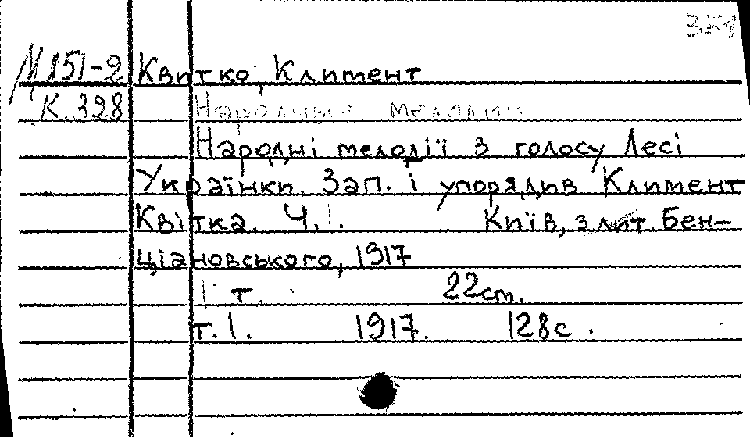 М151-2 Квитко, Климент
К.398 Народные мелодии
Народні мелодії з голосу Лесі
Українки. Зап. і упорядив Климент
Квітка. Ч.1. Київ, з лит. Бен-
ціановського, 1917
1 т. 22 ст.
т.1. 1917. 128 с.